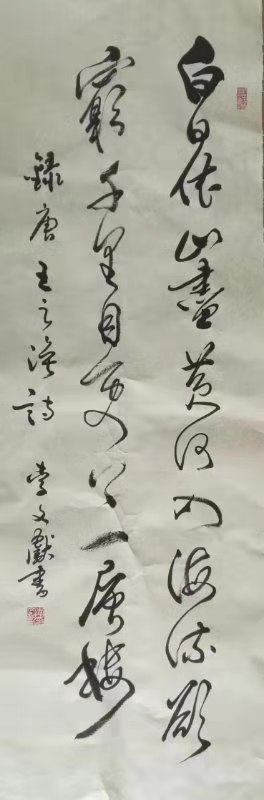 白日依山盡黄河入海流欲
窮千里目更上一層樓
錄唐王之渙詩 文獻書